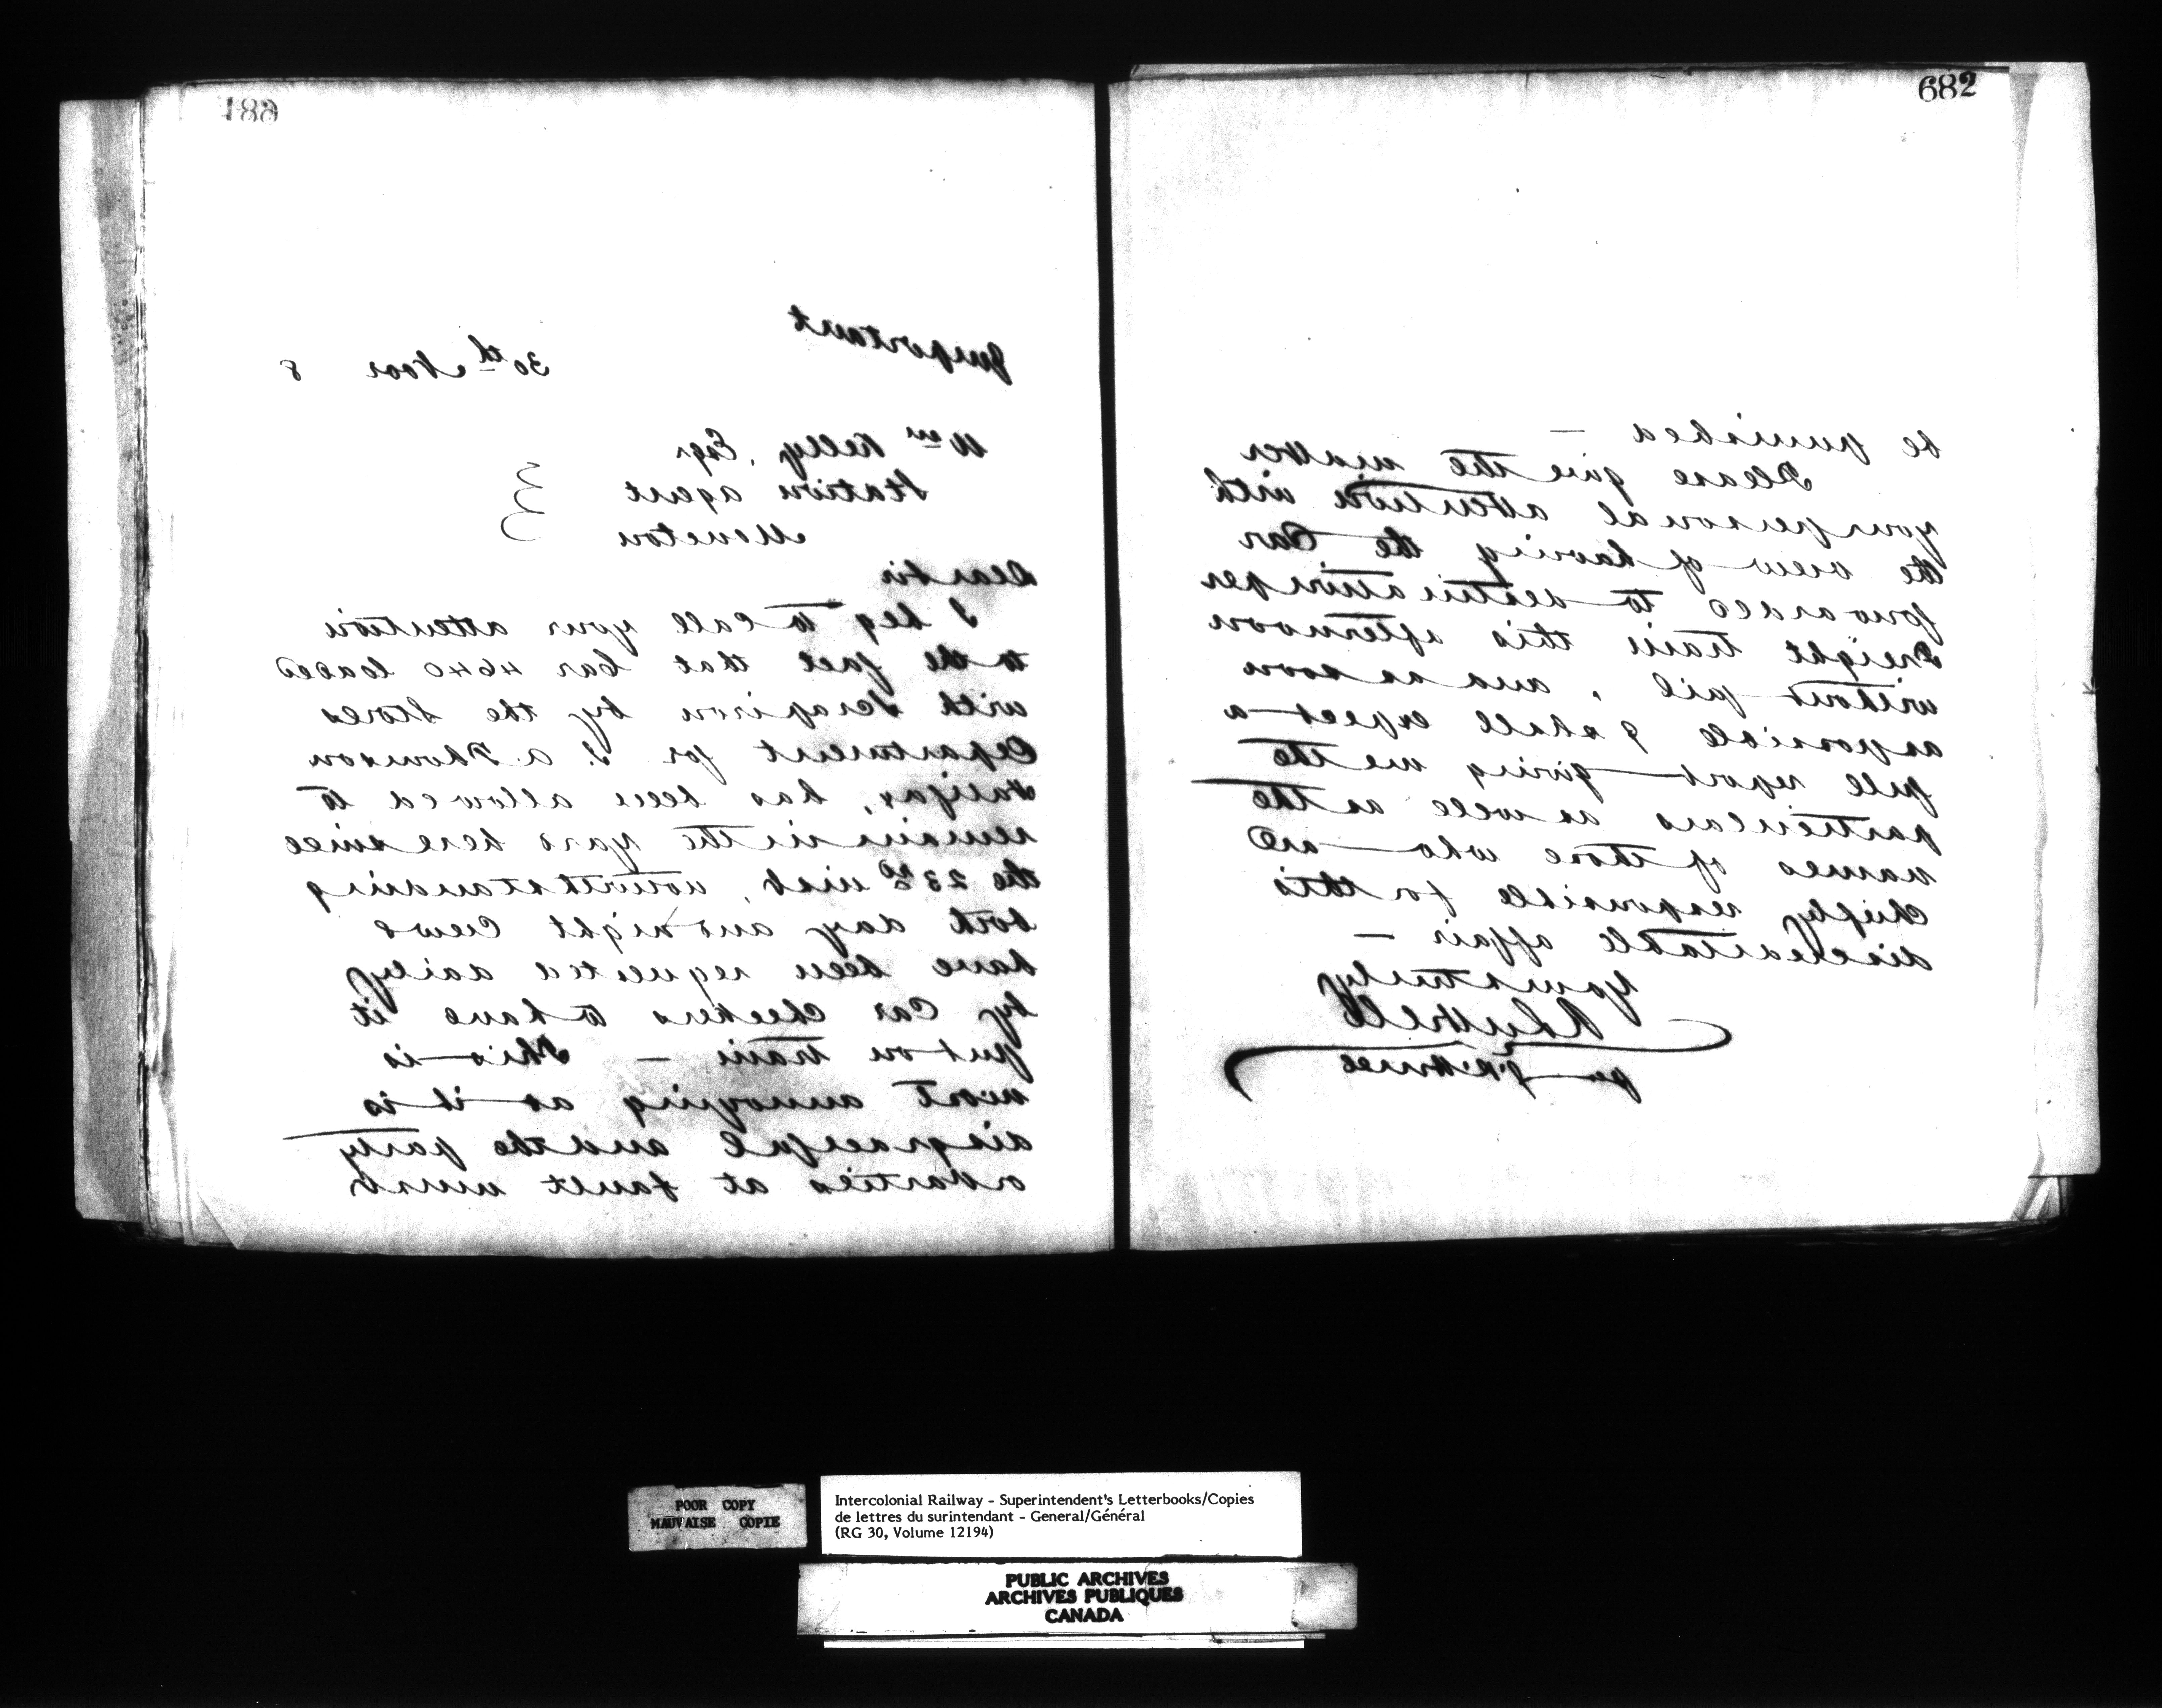 681
Important
30th Novr 8
Wm Kelly, Esqr
Station agent
Moncton
Dear Sir
I beg to call your attention
to the fact that Car 4640 loaded
with Scrap iron by the Stores
Department for J. A. Thomson
Halifax, has been allowed to
remain in the yard here since
the 23rd inst, notwithstanding
both day and night Crews
have been requested daily
by Car Checkers to have it
put on train – This is
most annoying as it is
disgraceful and the party
or parties at fault must
682
be punished –
Please give the matter
your personal attention with
the view of having the Car
forwarded to destination per
Freight train this afternoon
without fail, and as soon
as possible I shall expect a
full report giving me the
particulars as well as the
names of those who are
Chiefly responsible for this
discreditable affair –
Yours truly
R Luttrell
per
POOR COPY
MAUVAISE COPIE
Intercolonial Railway - Superintendent's Letterbooks/Copies
de lettres du surintendant - General/Général
(RG 30, Volume 12194)
PUBLIC ARCHIVES
ARCHIVES PUBLIQUES
CANADA